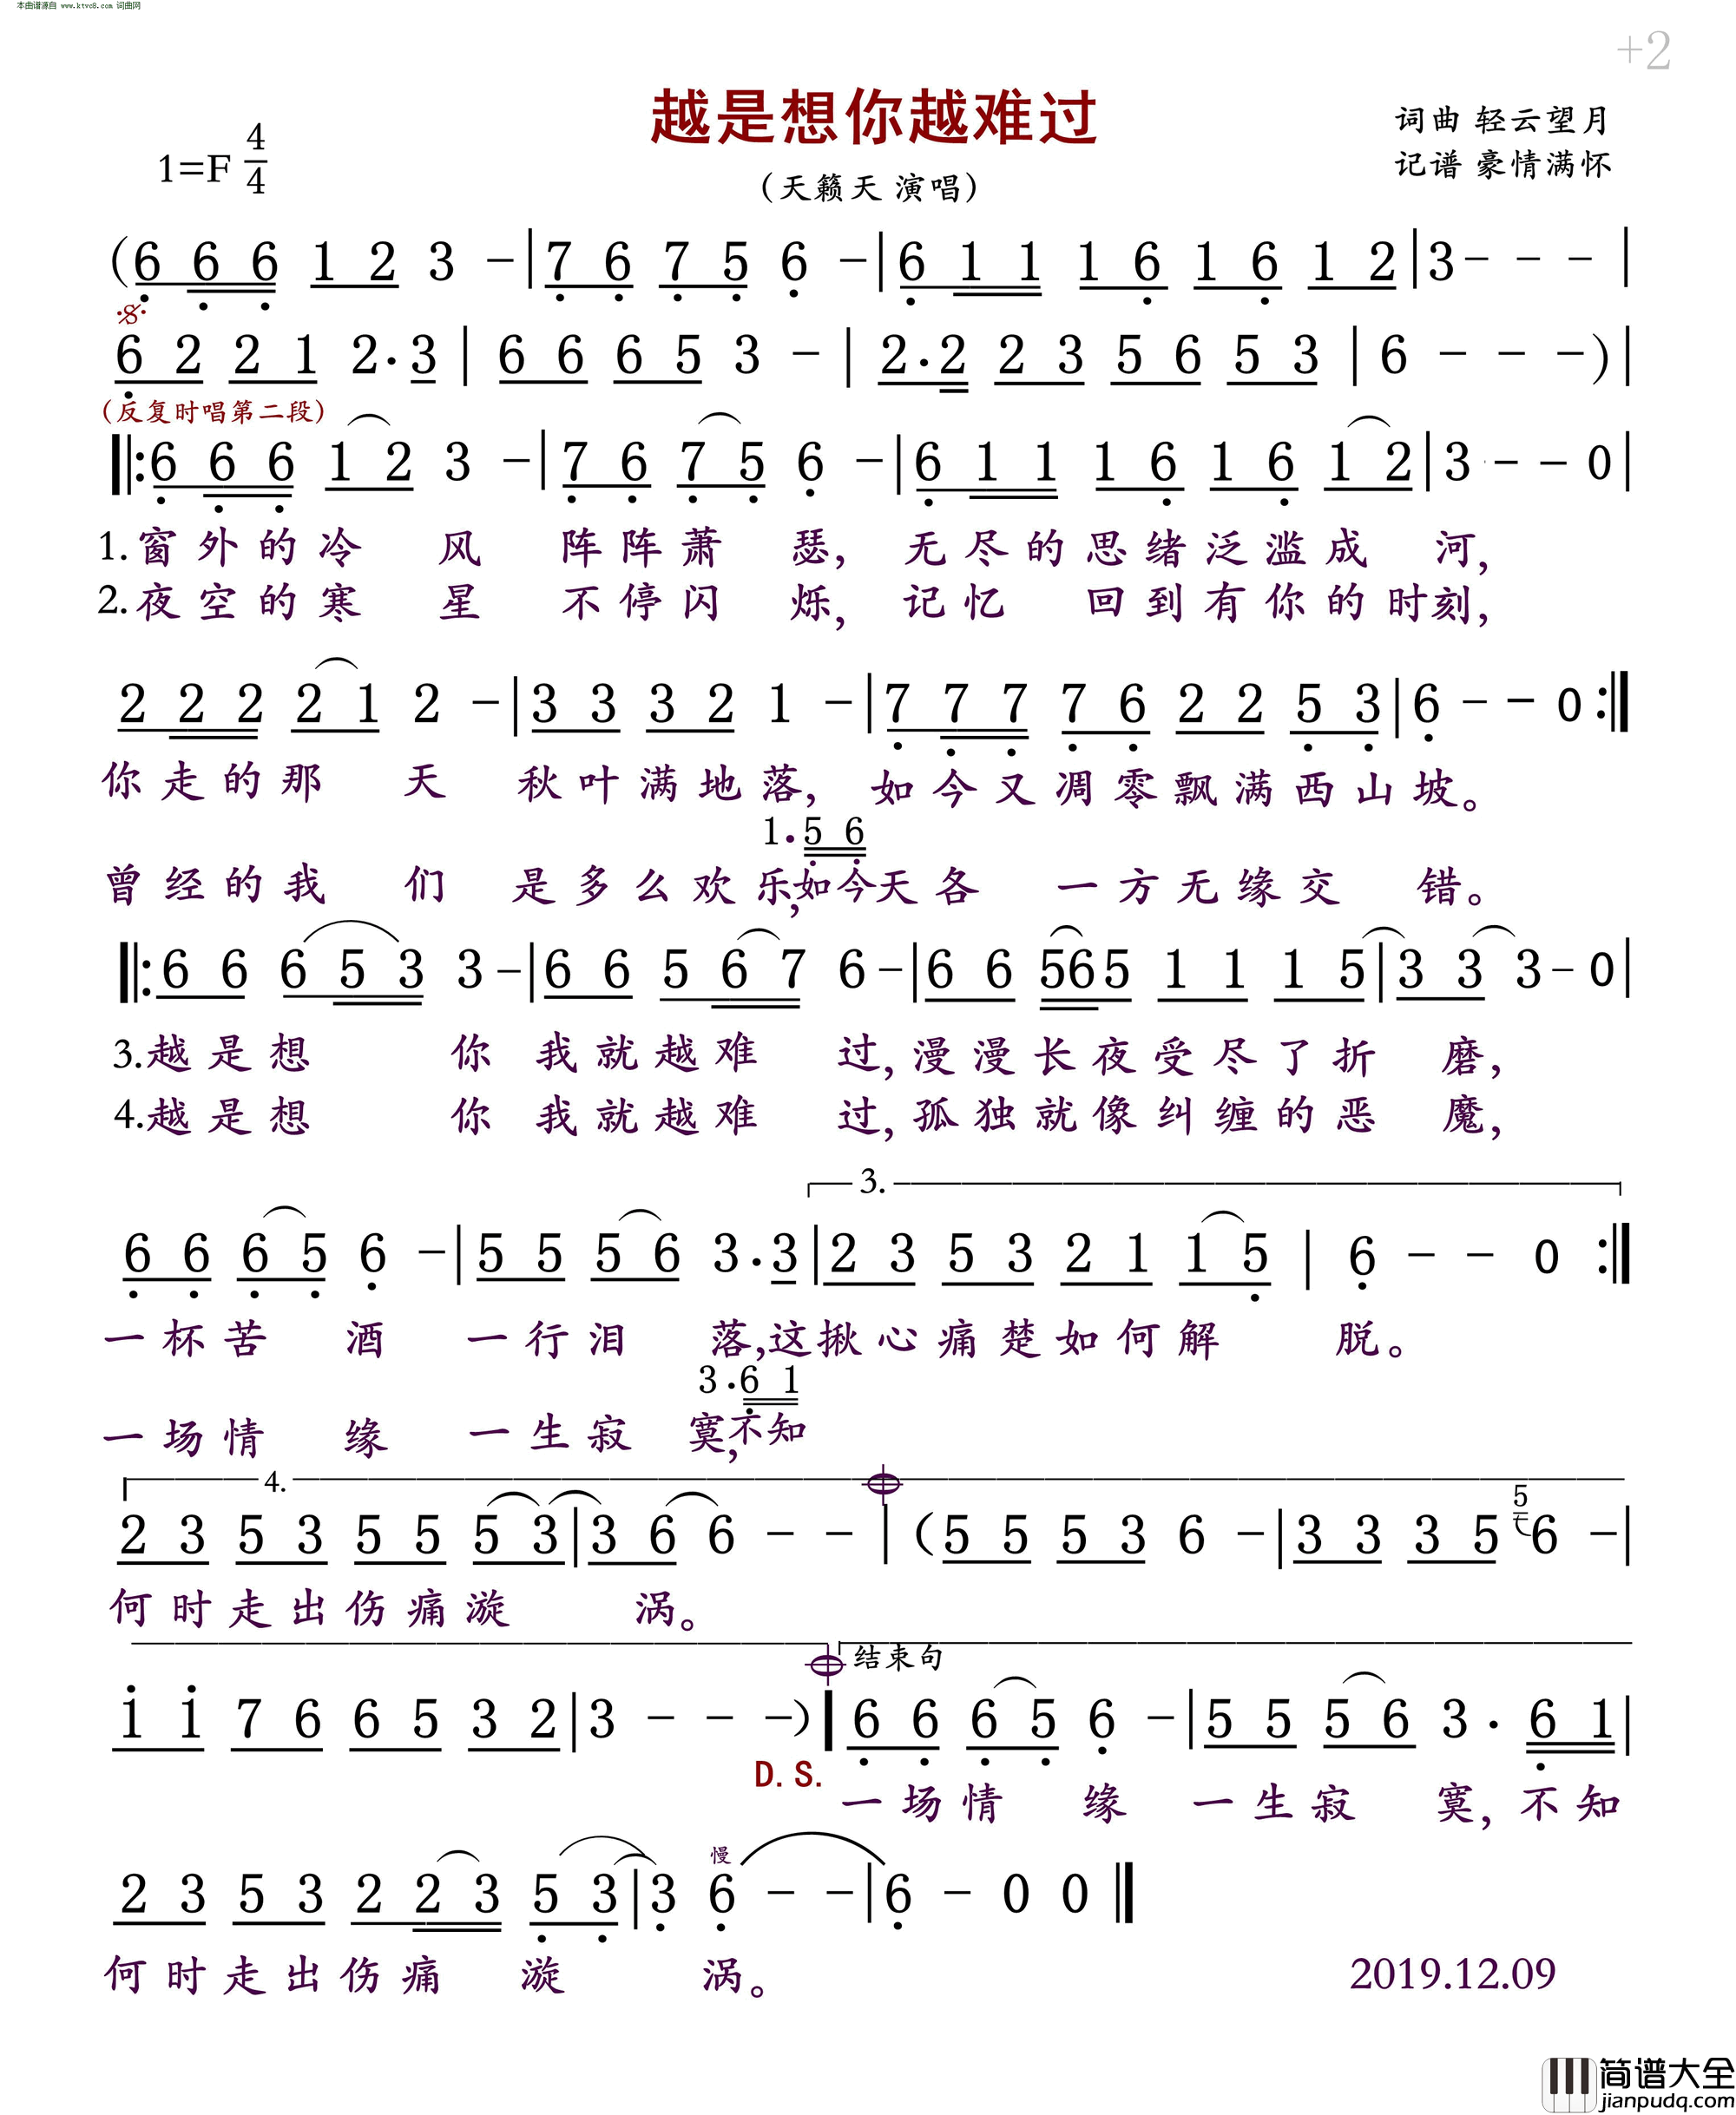 本曲谱源自 www.ktvc8.com 词曲网
+2
越是想你越难过
词曲 轻云望月
1=F 4/4
(天籁天 演唱)
记谱 豪情满怀
(6 6 6 1 2 3 -|7 6 7 5 6 -|6 1 1 1 6 1 6 1 2|3- - - |
6 2 2 1 2.3 | 6 6 6 5 3 - | 2.2 2 3 5 6 5 3 | 6 - - -)|
(反复时唱第二段)
‖:6 6 6 1 2 3 -|7 6 7 5 6 -|6 1 1 1 6 1 6 1 2|3 - - 0|
1.窗外的冷 风 阵阵萧 瑟, 无尽的思绪泛滥成 河,
2.夜空的寒 星 不停闪 烁, 记忆 回到有你的时刻,
2 2 2 2 1 2 -|3 3 3 2 1 -|7 7 7 7 6 2 2 5 3|6 - - 0:‖
你走的那 天 秋叶满地落, 如今又凋零飘满西山坡。
1.5 6
曾经的我 们 是多么欢乐,如今天各 一方无缘交 错。
‖:6 6 6 5 3 3-|6 6 5 6 7 6-|6 6 565 1 1 1 5|3 3 3- 0|
3.越是想 你 我就越难 过,漫漫长夜受尽了折 磨,
4.越是想 你 我就越难 过,孤独就像纠缠的恶 魔,
3.
6 6 6 5 6 -|5 5 5 6 3.3|2 3 5 3 2 1 1 5 | 6 - - 0 :‖
一杯苦 酒 一行泪 落,这揪心痛楚如何解 脱。
3.6 1
一场情 缘 一生寂 寞,不知
4.
2 3 5 3 5 5 5 3|3 6 6 - - | (5 5 5 3 6 -|3 3 3 5 5 6 -|
何时走出伤痛漩 涡。
结束句
1 1 7 6 6 5 3 2|3 - - -)|6 6 6 5 6 -|5 5 5 6 3 . 6 1|
D.S.
一场情 缘 一生寂 寞,不知
慢
2 3 5 3 2 2 3 5 3|3 6 - -|6 - 0 0 ‖
何时走出伤痛 漩 涡。
2019.12.09
简谱大全
jianpudq.com